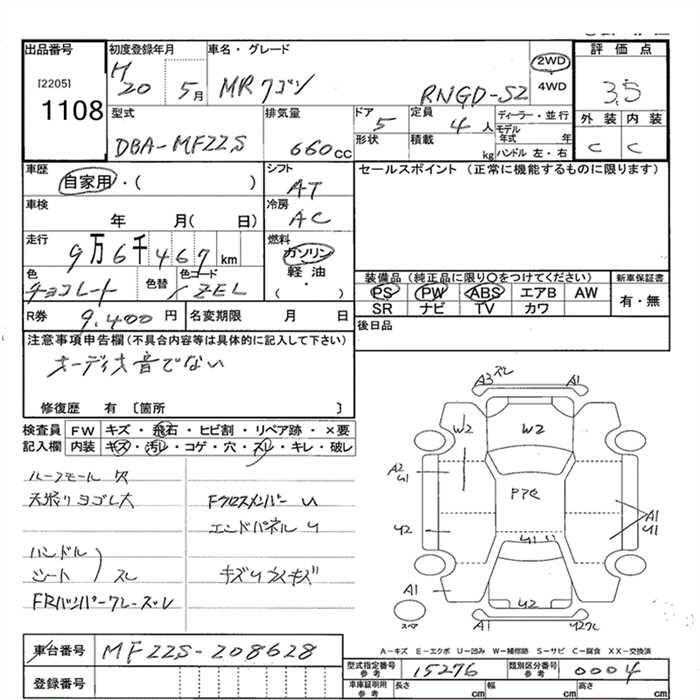 出品番号
[2205]
1108
初度登録年月
H 20 5月
車名・グレード
MRワゴン
RNGD-SZ
2WD
4WD
評価点
3.5
外装 内装
C C
型式
DBA-MF22S
排気量
660cc
ドア
5
形状
定員
4人
積載
kg
ディーラー・並行
モデル年式 年
ハンドル 左・右
車歴
自家用・( )
シフト
AT
セールスポイント (正常に機能するものに限ります)
車検
年 月( 日)
冷房
AC
走行
9万6千467km
燃料
ガソリン
軽油・
( )
色
チョコレート
色替
色コード
ZEL
装備品 (純正品に限り○をつけてください)
PS PW ABS エアB AW
SR ナビ TV カワ
新車保証書
有・無
R券
9,400円
名変期限 月 日
後日品
注意事項申告欄(不具合内容等は具体的に記入して下さい)
オーディオ音でない
修復歴 有 〔箇所 〕
検査員記入欄
FW キズ・飛石・ヒビ割・リペア跡・×要
内装 キズ・汚レ・コゲ・穴・スレ・キレ・破レ
ルーフモール欠
天張りヨゴレ大
Fクロスメンバー U
エンドパネル U
ハンドル
シート
スレ
キズUウスキズ
FRバンパーワレ・ズレ
A3 ズレ A1
W2 W2
A2
U1
PアC
U2
A1
U1
U1 U
A1
U2
スペア
A1 U2ワレ
A-キズ E-エクボ U-凹み W-補修跡 S-サビ C-腐食 XX-交換済
車台番号
MF22S-208628
登録番号
型式指定番号 参考
15276
類別区分番号 参考
0004
車庫証明用 参考
長さ cm 幅 cm 高さ cm